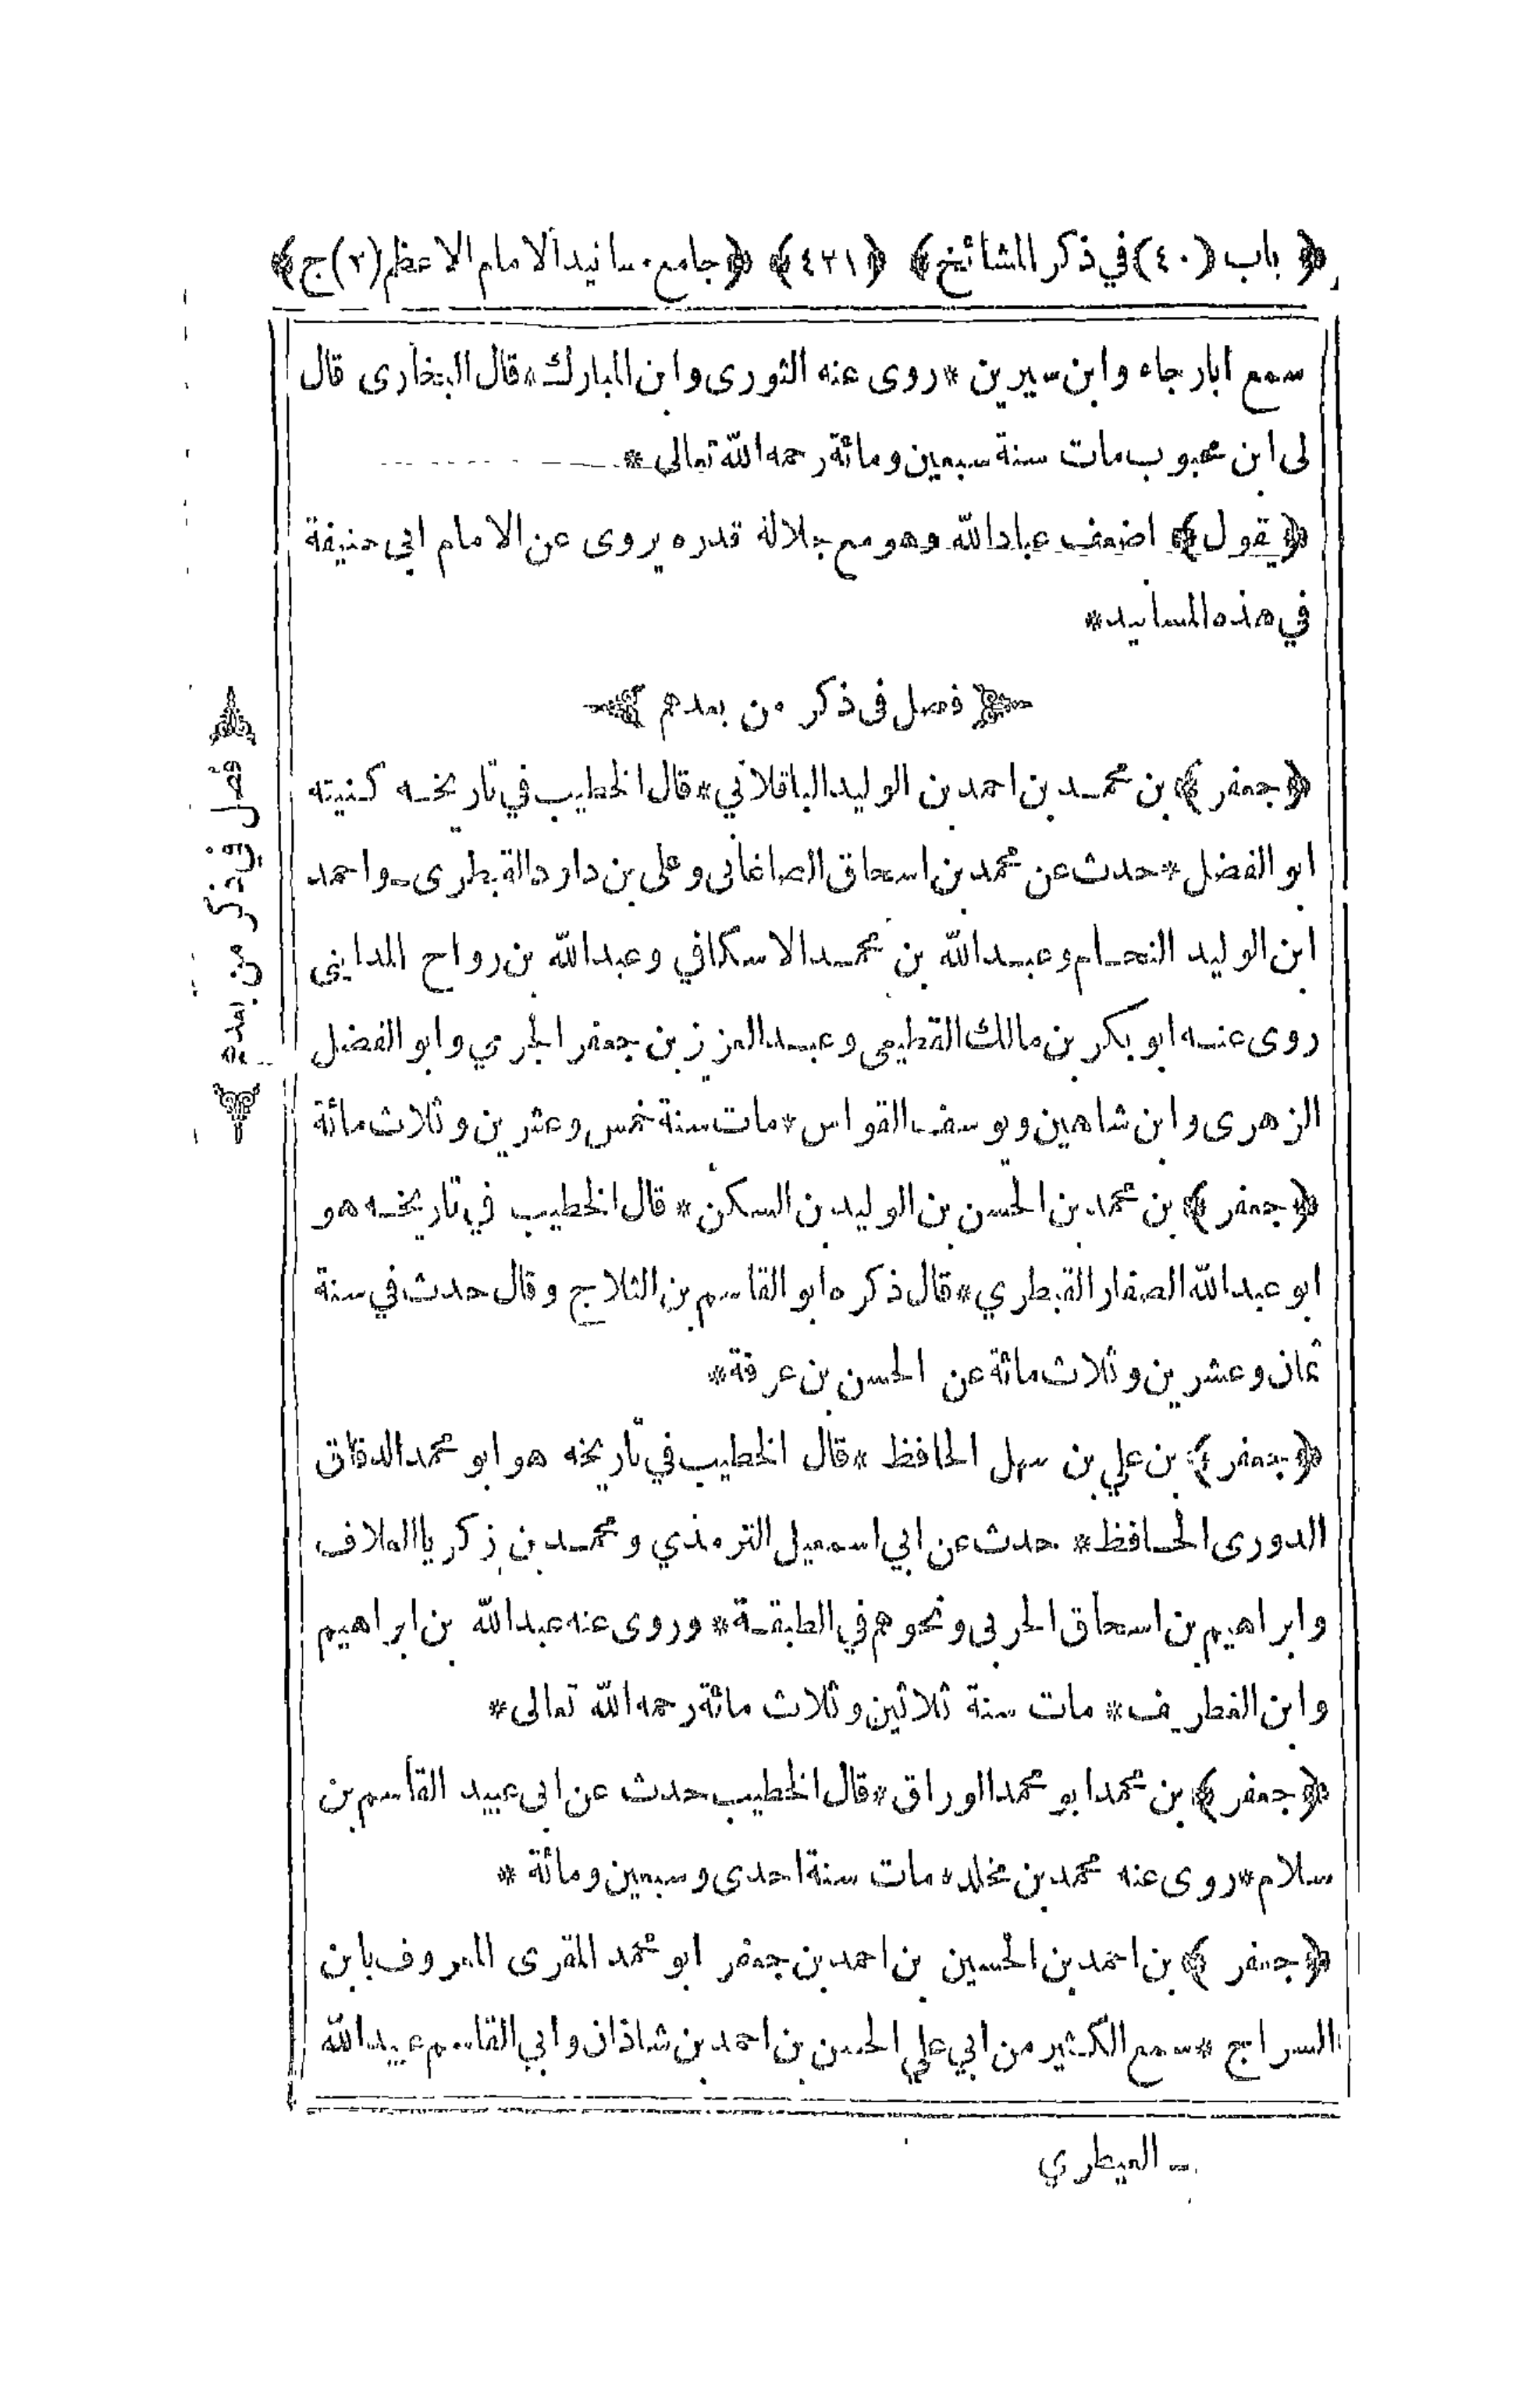 ﴿ باب (٤٠) في ذكر المشائخ ﴾ ﴿ ٤٢١ ﴾ ﴿ جامع مسانيد الامام الاعظم (٢) ج ﴾
سمع ابا رجاء وابن سيرين * روى عنه الثورى وابن المبارك * قال البخارى قال
لى ابن محبوب مات سنة سبعين ومائة رحمه الله تعالى *
﴿ يقول ﴾ اضعف عباد الله وهو مع جلالة قدره يروى عن الامام ابى حنيفة
في هذه المسانيد *
فصل فى ذكر من بعدهم
﴿ جعفر ﴾ بن محمد بن احمد بن الوليد الباقلاني * قال الخطيب في تاريخه كنيته
ابو الفضل * حدث عن محمد بن اسحاق الصاغانى وعلى بن داود القبطرى ـ واحمد
ابن الوليد النحام وعبد الله بن محمد الاسكافي وعبد الله بن رواح المداينى
روى عنه ابو بكر بن مالك القطيعى وعبد العزيز بن جعفر الجرمي وابو الفضل
الزهرى وابن شاهين ويوسف القواس * مات سنة خمس وعشرين وثلاث مائة
﴿ جعفر ﴾ بن محمد بن الحسن بن الوليد بن السكن * قال الخطيب في تاريخه هو
ابو عبد الله الصفار القبطري * قال ذكره ابو القاسم بن الثلاج وقال حدث في سنة
ثمان وعشرين وثلاث مائة عن الحسن بن عرفة *
﴿ جعفر ﴾ بن علي بن سهل الحافظ * قال الخطيب في تاريخه هو ابو محمد الدقاق
الدورى الحافظ * حدث عن ابي اسمعيل الترمذي ومحمد بن زكريا العلاف
وابراهيم بن اسحاق الحربى ونحوهم في الطبقة * وروى عنه عبد الله بن ابراهيم
وابن الغطريف * مات سنة ثلاثين وثلاث مائة رحمه الله تعالى *
﴿ جعفر ﴾ بن محمد ابو محمد الوراق * قال الخطيب حدث عن ابى عبيد القاسم بن
سلام * روى عنه محمد بن مخلد * مات سنة احدى وسبعين ومائة *
﴿ جعفر ﴾ بن احمد بن الحسين بن احمد بن جعفر ابو محمد المقرى المعروف بابن
السراج * سمع الكثير من ابي علي الحسن بن احمد بن شاذان وابي القاسم عبيد الله
ـ العيطري
فصل في ذكر من بعدهم